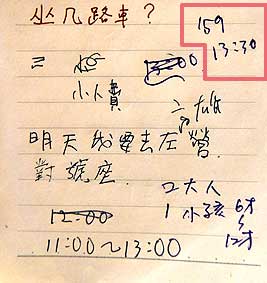 坐几路車？
159
13:30
小人賣
高雄
明天我要去左營.
對號座.
2大人
1小孩 6才
12才
12:00
11:00~13:00